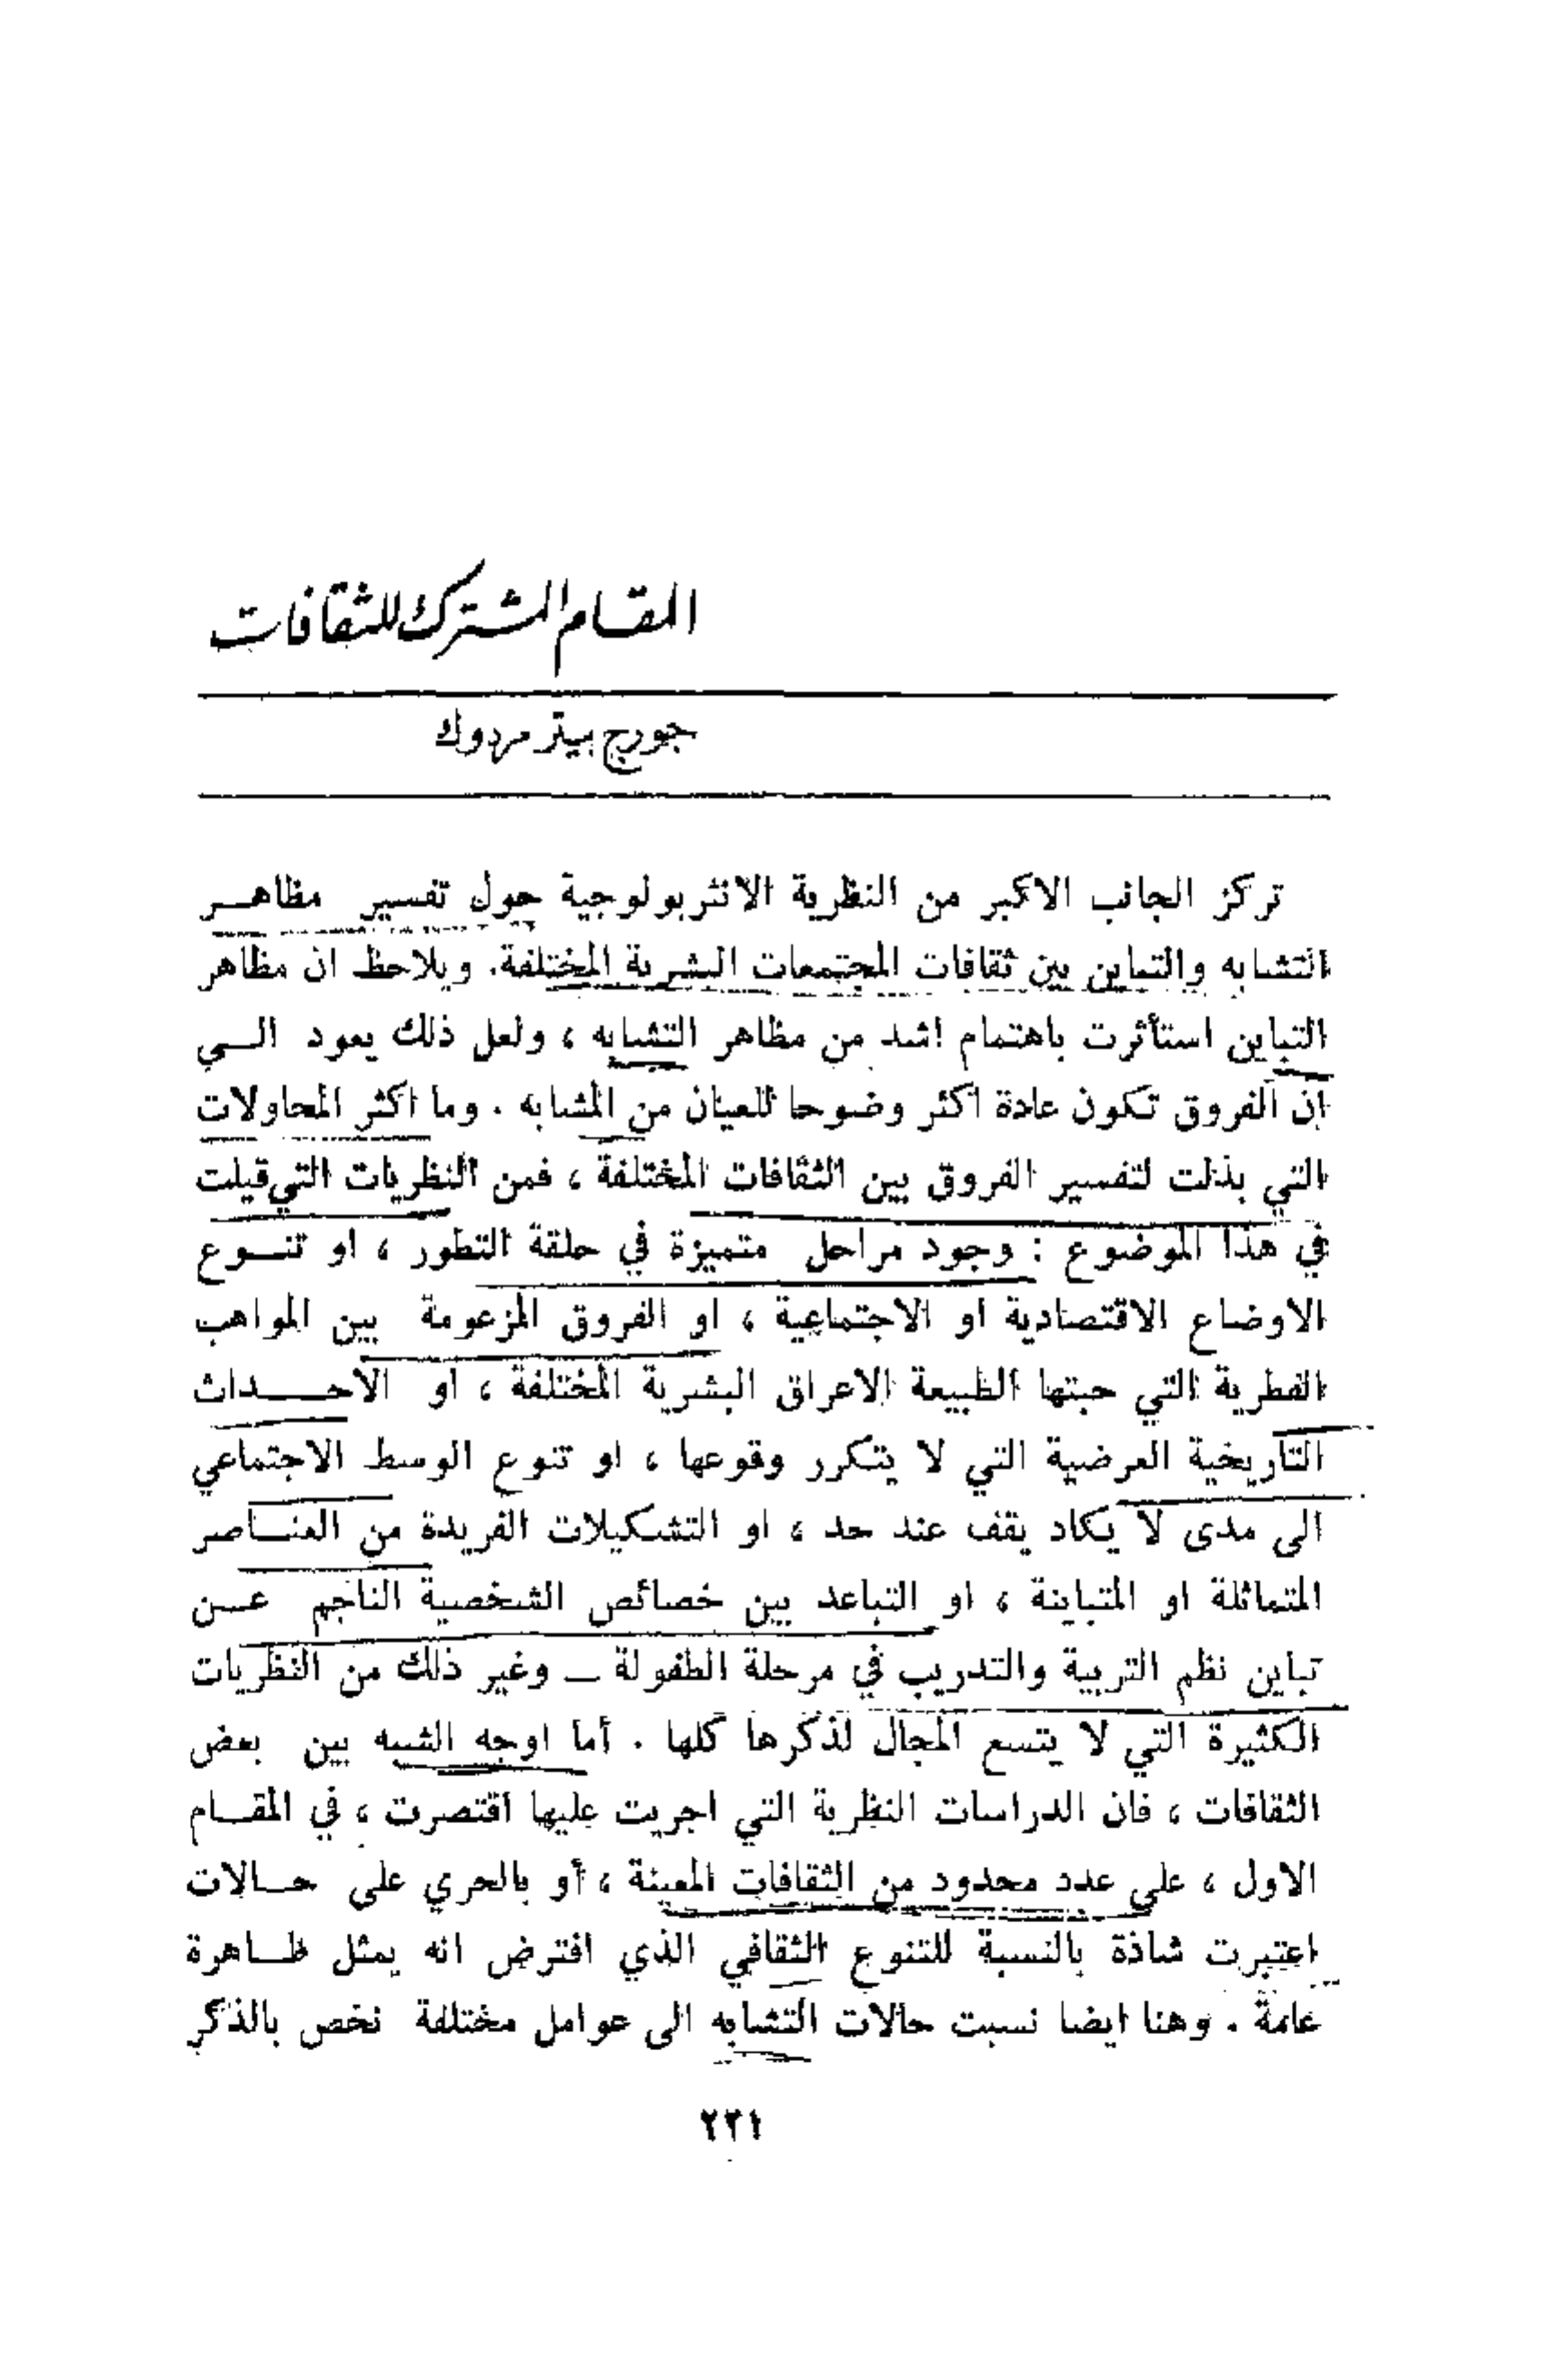 المقام المشترك للثقافات
جورج بيتر مردوك
تركز الجانب الاكبر من النظرية الانثربولوجية حول تفسير مظاهر
التشابه والتباين بين ثقافات المجتمعات البشرية المختلفة. ويلاحظ ان مظاهر
التباين استأثرت باهتمام اشد من مظاهر التشابه ، ولعل ذلك يعود الى
ان الفروق تكون عادة اكثر وضوحا للعيان من المشابه . وما اكثر المحاولات
التي بذلت لتفسير الفروق بين الثقافات المختلفة ، فمن النظريات التي قيلت
في هذا الموضوع : وجود مراحل متميزة في حلقة التطور ، او تنوع
الاوضاع الاقتصادية او الاجتماعية ، او الفروق المزعومة بين المواهب
الفطرية التي حبتها الطبيعة الاعراق البشرية المختلفة ، او الاحداث
التاريخية العرضية التي لا يتكرر وقوعها ، او تنوع الوسط الاجتماعي
الى مدى لا يكاد يقف عند حد ، او التشكيلات الفريدة من العناصر
المتماثلة او المتباينة ، او التباعد بين خصائص الشخصية الناجم عن
تباين نظم التربية والتدريب في مرحلة الطفولة ــ وغير ذلك من النظريات
الكثيرة التي لا يتسع المجال لذكرها كلها . أما اوجه الشبه بين بعض
الثقافات ، فان الدراسات النظرية التي اجريت عليها اقتصرت ، في المقام
الاول ، على عدد محدود من الثقافات المعينة ، أو بالحري على حالات
اعتبرت شاذة بالنسبة للتنوع الثقافي الذي افترض انه يمثل ظاهرة
عامة . وهنا ايضا نسبت حالات التشابه الى عوامل مختلفة نخص بالذكر
٢٢١